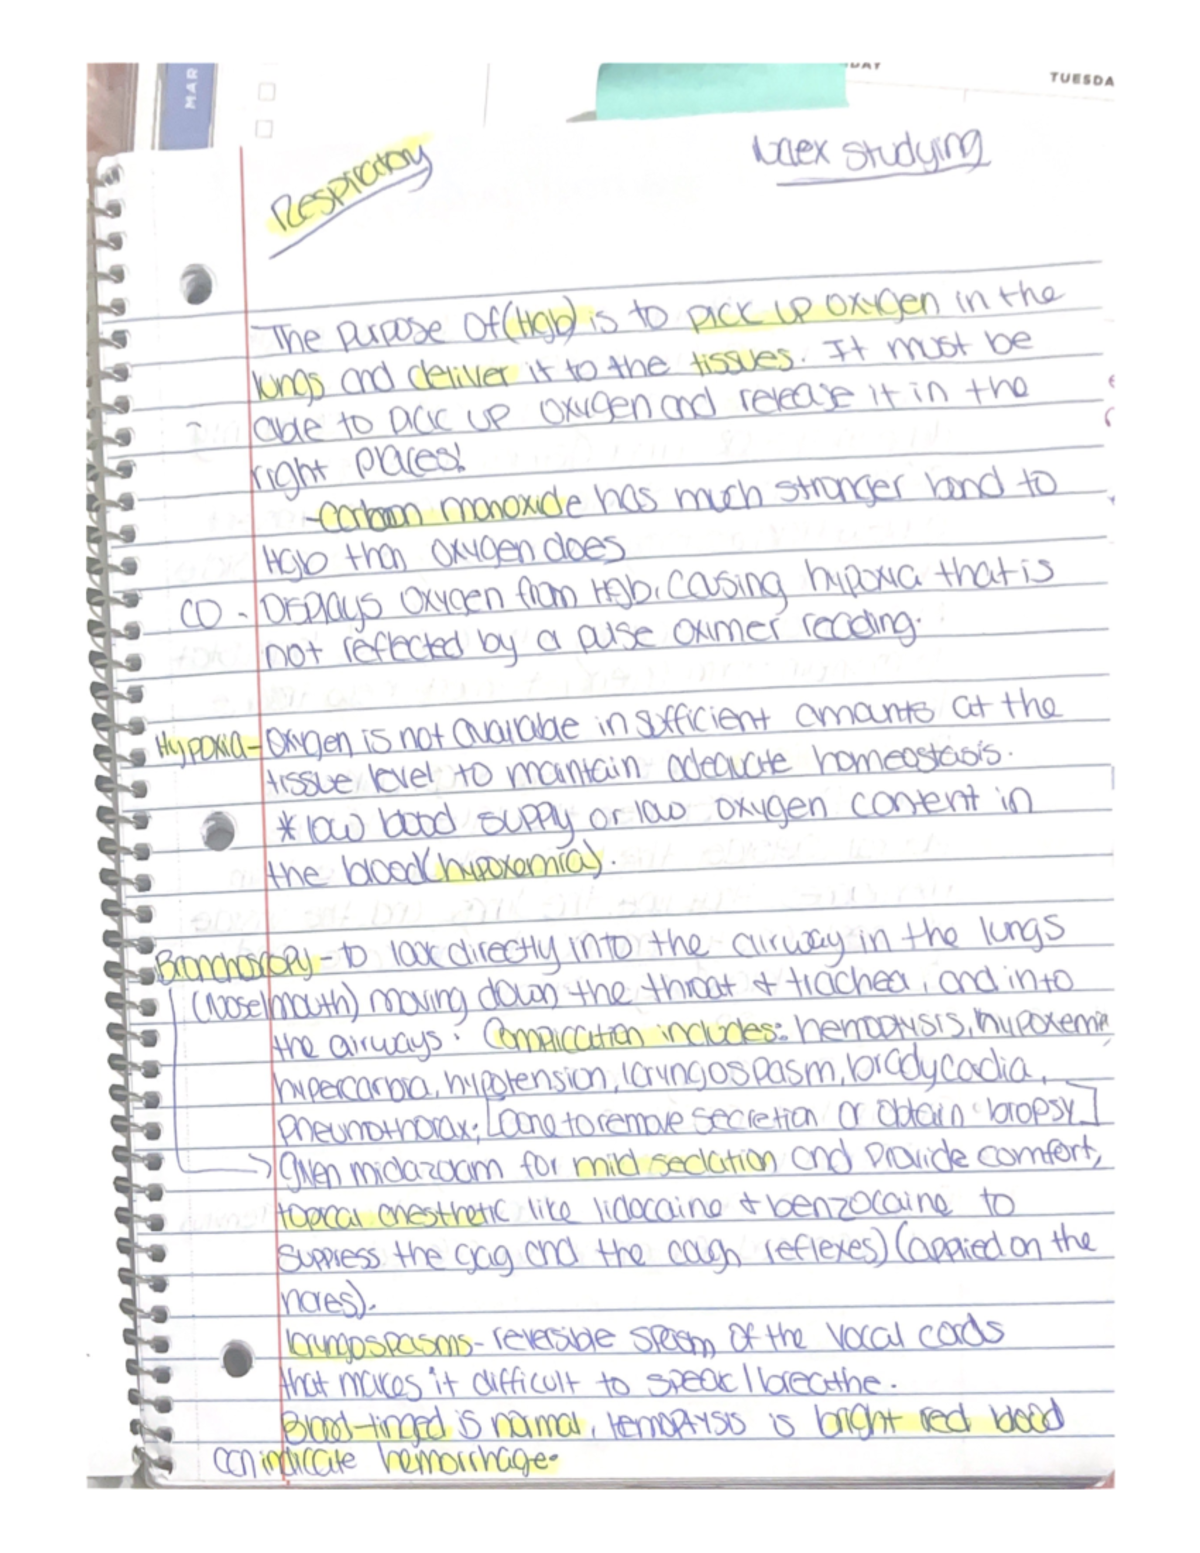 MAR
TUESDA
Respiratory
Uaex studying
The purpose of (Hgb) is to pick up oxygen in the
lungs and deliver it to the tissues. It must be
able to pick up oxygen and release it in the
right places!
-carbon monoxide has much stronger bond to
Hgb than oxygen does
CO - Displays oxygen from Hgb, causing hypoxia that is
not reflected by a pulse oximer reading.
Hypoxia - Oxygen is not available in sufficient amounts at the
tissue level to maintain adequate homeostasis.
* low blood supply or low oxygen content in
the blood (hypoxemia).
Bronchoscopy - to look directly into the airway in the lungs
(nose/mouth) moving down the throat & trachea, and into
the airways. Complication includes: hemoptysis, hypoxemia,
hypercarbia, hypotension, laryngospasm, bradycadia,
pneumothorax; [done to remove secretion or obtain biopsy]
Given midazolam for mild sedation and provide comfort,
topical anesthetic like lidocaine & benzocaine to
suppress the gag and the cough reflexes) (applied on the
nares).
laryngospasms - reversible spasm of the vocal cords
that makes it difficult to speak/breathe.
Blood-tinged is normal, hemoptysis is bright red blood
can indicate hemorrhage.